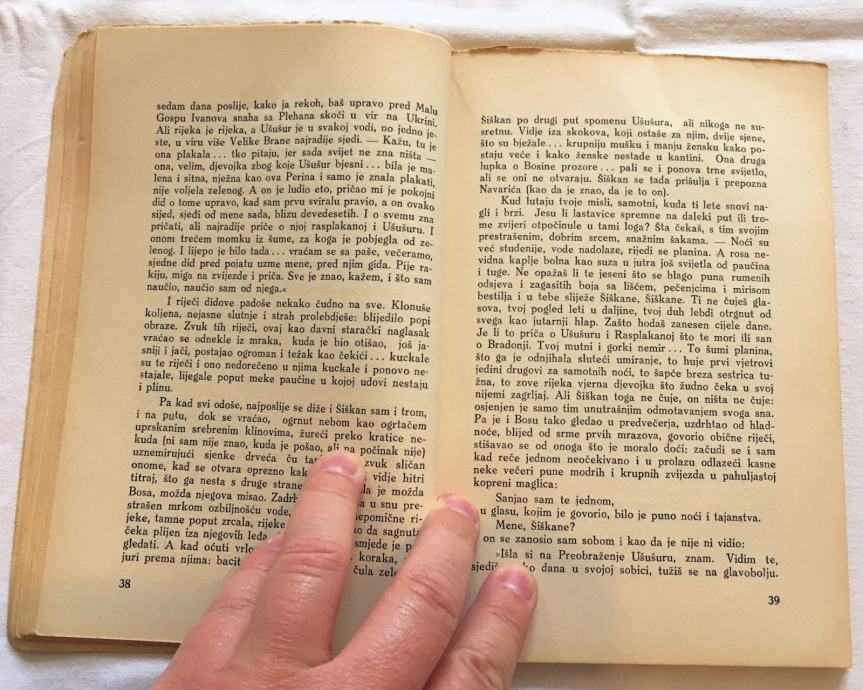 sedam dana poslije, kako ja rekoh, baš upravo pred Malu
Gospu Ivanova snaha sa Plehana skoči u vir na Ukrini.
Ali rijeka je rijeka, a Ušušur je u svakoj vodi, no jedno je-
ste, u viru više Velike Brane najradije sjedi. — Kažu, tu je
ona plakala... tko pitaju, jer sada svijet ne zna ništa —
ona, velim, djevojka zbog koje Ušušur bjesni... bila je ma-
lena i sitna, nježna kao ova Perina i samo je znala plakati,
nije voljela zelenog. A on je ludio eto, pričao mi je pokojni
did o tome upravo, kad sam prvu sviralu pravio, a on ovako
sijed, sjedi od mene sada, blizu devedesetih. I o svemu zna
pričati, ali najradije priče o njoj rasplakanoj i Ušušuru. I
onom trećem momku iz šume, za koga je pobjegla od ze-
lenog. I lijepo je bilo tada... vraćam se sa paše, večeramo,
sjedne did pred pojatu uzme mene, pred njim gida. Pije ra-
kiju, miga na zvijezde i priča. Sve je znao, kažem, i što sam
naučio, naučio sam od njega.«
I riječi didove padoše nekako čudno na sve. Klonuše
koljena, nejasne slutnje i strah prolebdješe: blijedilo popi
obraze. Zvuk tih riječi, ovaj kao davni starački naglasak
vraćao se odnekle iz mraka, kuda je bio otišao, još ja-
sniji i jači, postajao ogroman i težak kao čekići... kuckale
su te riječi i ono nedorečeno u njima kuckale i ponovo ne-
stajale, lijegale poput meke paučine u kojoj udovi nestaju
i plinu.
Pa kad svi odoše, najposlije se diže i Šiškan sam i trom,
i na putu, dok se vraćao, ogrnut nebom kao ogrtačem
uprskanim srebrenim klinovima, žureći preko kratice ne-
kuda (ni sam nije znao, kuda je pošao, ali na počinak nije)
uznemirujući sjenke drveća ču zvuk sličan
onome, kad se otvara oprezno vidje hitri
titraj, što ga nesta s druge strane je možda
Bosa, možda njegova misao. u snu pre-
strašen mrkom ozbiljnošću vode, nepomične ri-
jeke, tamne poput zrcala, rijeke da sagnuta
čeka plijen iz njegovih
gledati. A kad oćuti smjede je
juri prema njima: koraka,
čula
38
Šiškan po drugi put spomenu Ušušura, ali nikoga ne su-
sretnu. Vidje iza skokova, koji ostaše za njim, dvije sjene,
što su bježale... krupniju mušku i manju žensku kako po-
staju veće i kako ženske nestade u kantini. Ona druga
lupka o Bosine prozore... pali se i ponova trne svijetlo,
ali se oni ne otvaraju. Šiškan se tada prišulja i prepozna
Navarića (kao da je znao, da je to on).
Kud lutaju tvoje misli, samotni, kuda ti lete snovi na-
gli i brzi. Jesu li lastavice spremne na daleki put ili tro-
me zvijeri otpočinule u tami loga? Šta čekaš, s tim svojim
prestrašenim, dobrim srcem, snažnim šakama. — Noći su
već studenije, vode nadolaze, rijedi se planina. A rosa ne-
vidna kaplje bolna kao suza u jutra još svijetla od paučina
i tuge. Ne opažaš li te jeseni što se blago puna rumenih
odsjeva i zagasitih boja sa lišćem, pečenjcima i mirisom
bestilja i u tebe sliježe Šiškane, Šiškane. Ti ne čuješ gla-
sova, tvoj pogled leti u daljine, tvoj duh lebdi otrgnut od
svega kao jutarnji hlap. Zašto hodaš zanesen cijele dane.
Je li to priča o Ušušuru i Rasplakanoj što te mori ili san
o Bradonji. Tvoj mutni i gorki nemir... To šumi planina,
što ga je odnjihala sluteći umiranje, to huje prvi vjetrovi
jedini drugovi za samotnih noći, to šapće breza sestrica tu-
žna, to zove rijeka vjerna djevojka što žudno čeka u svoj
nijemi zagrljaj. Ali Šiškan toga ne čuje, on ništa ne čuje:
osjenjen je samo tim unutrašnjim odmotavanjem svoga sna.
Pa je i Bosu tako gledao u predvečerja, uzdrhtao od hlad-
noće, blijed od srme prvih mrazova, govorio obične riječi,
stišavao se od onoga što je moralo doći; začudi se i sam
kad reče jednom neočekivano i u prolazu odlazeći kasne
neke večeri pune modrih i krupnih zvijezda u pahuljastoj
kopreni maglica:
Sanjao sam te jednom,
u glasu, kojim je govorio, bilo je puno noći i tajanstva.
Mene, Šiškane?
on se zanosio sam sobom i kao da je nije ni vidio:
»Išla si na Preobraženje Ušušuru, znam. Vidim te,
dana u svojoj sobici, tužiš se na glavobolju.
39